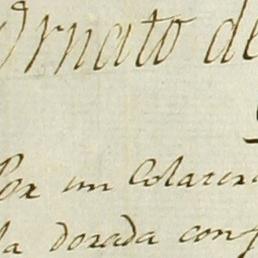 Ornato de
Por un Colarin
la dorada con